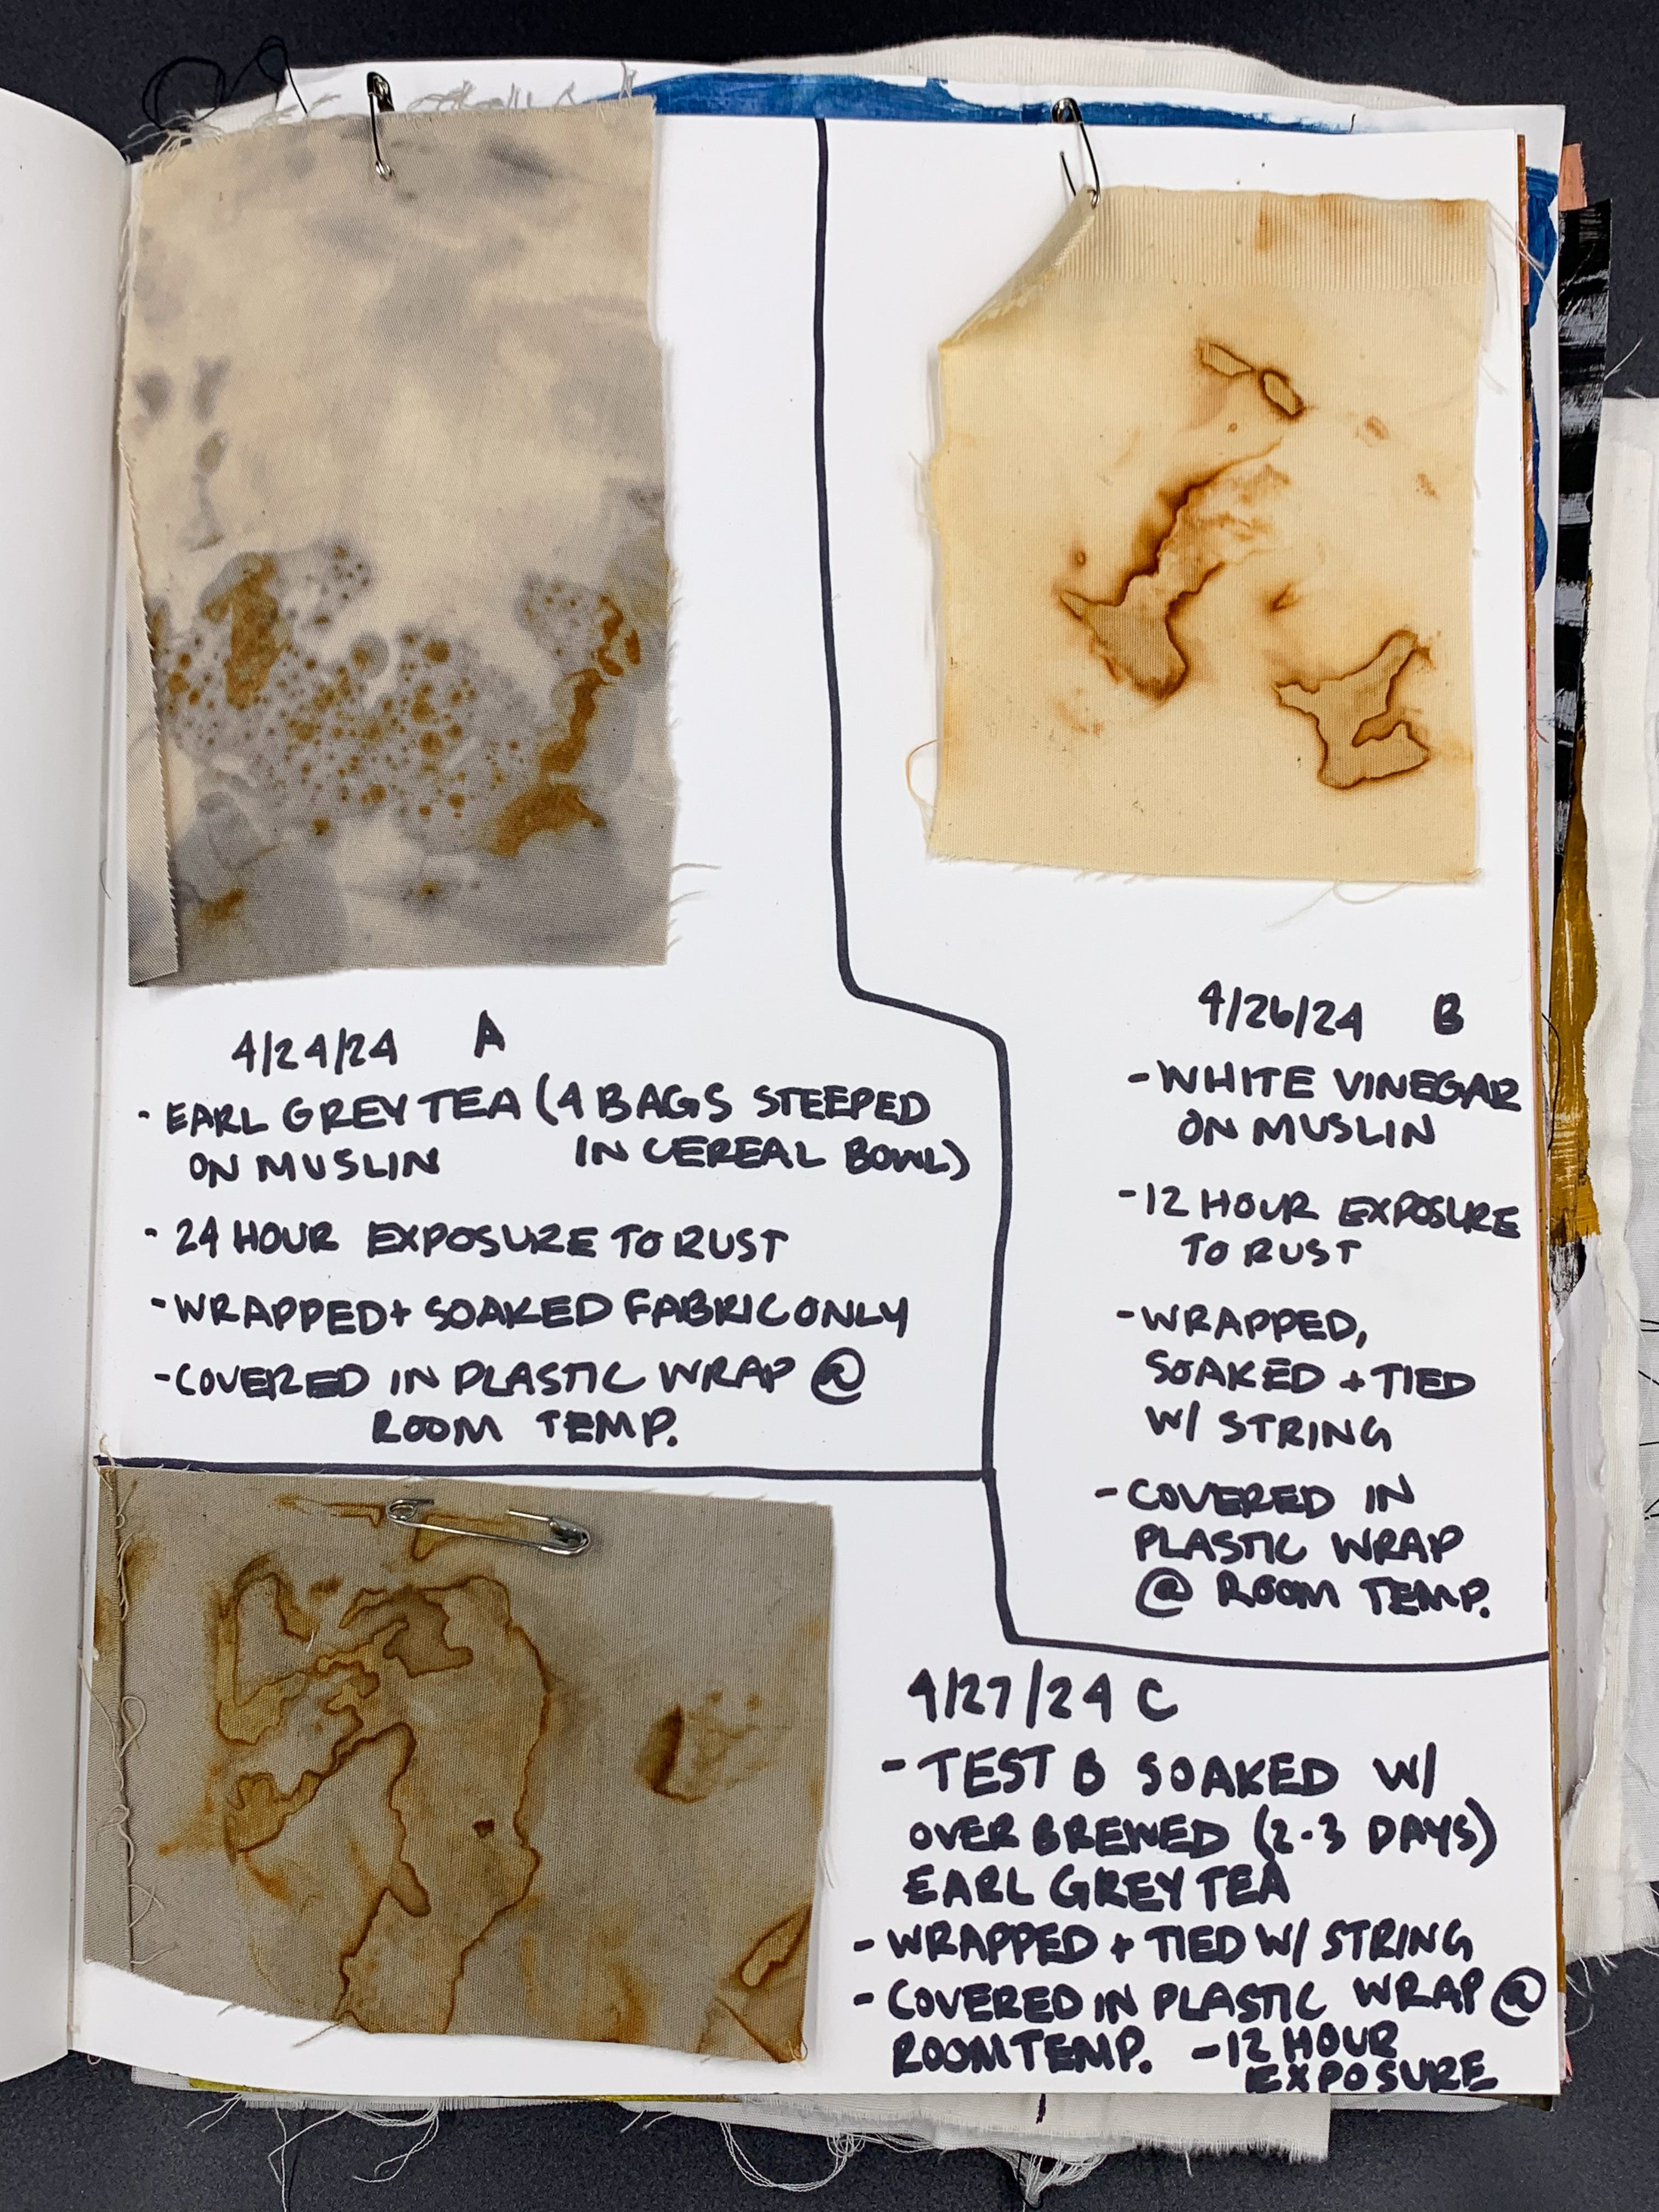 4/24/24 A
- EARL GREY TEA (4 BAGS STEEPED
ON MUSLIN IN CEREAL BOWL)
- 24 HOUR EXPOSURE TO RUST
- WRAPPED + SOAKED FABRIC ONLY
- COVERED IN PLASTIC WRAP @
ROOM TEMP.
4/26/24 B
- WHITE VINEGAR
ON MUSLIN
- 12 HOUR EXPOSURE
TO RUST
- WRAPPED,
SOAKED + TIED
W/ STRING
- COVERED IN
PLASTIC WRAP
@ ROOM TEMP.
4/27/24 C
- TEST B SOAKED W/
OVER BREWED (2-3 DAYS)
EARL GREY TEA
- WRAPPED + TIED W/ STRING
- COVERED IN PLASTIC WRAP @
ROOM TEMP. - 12 HOUR
EXPOSURE